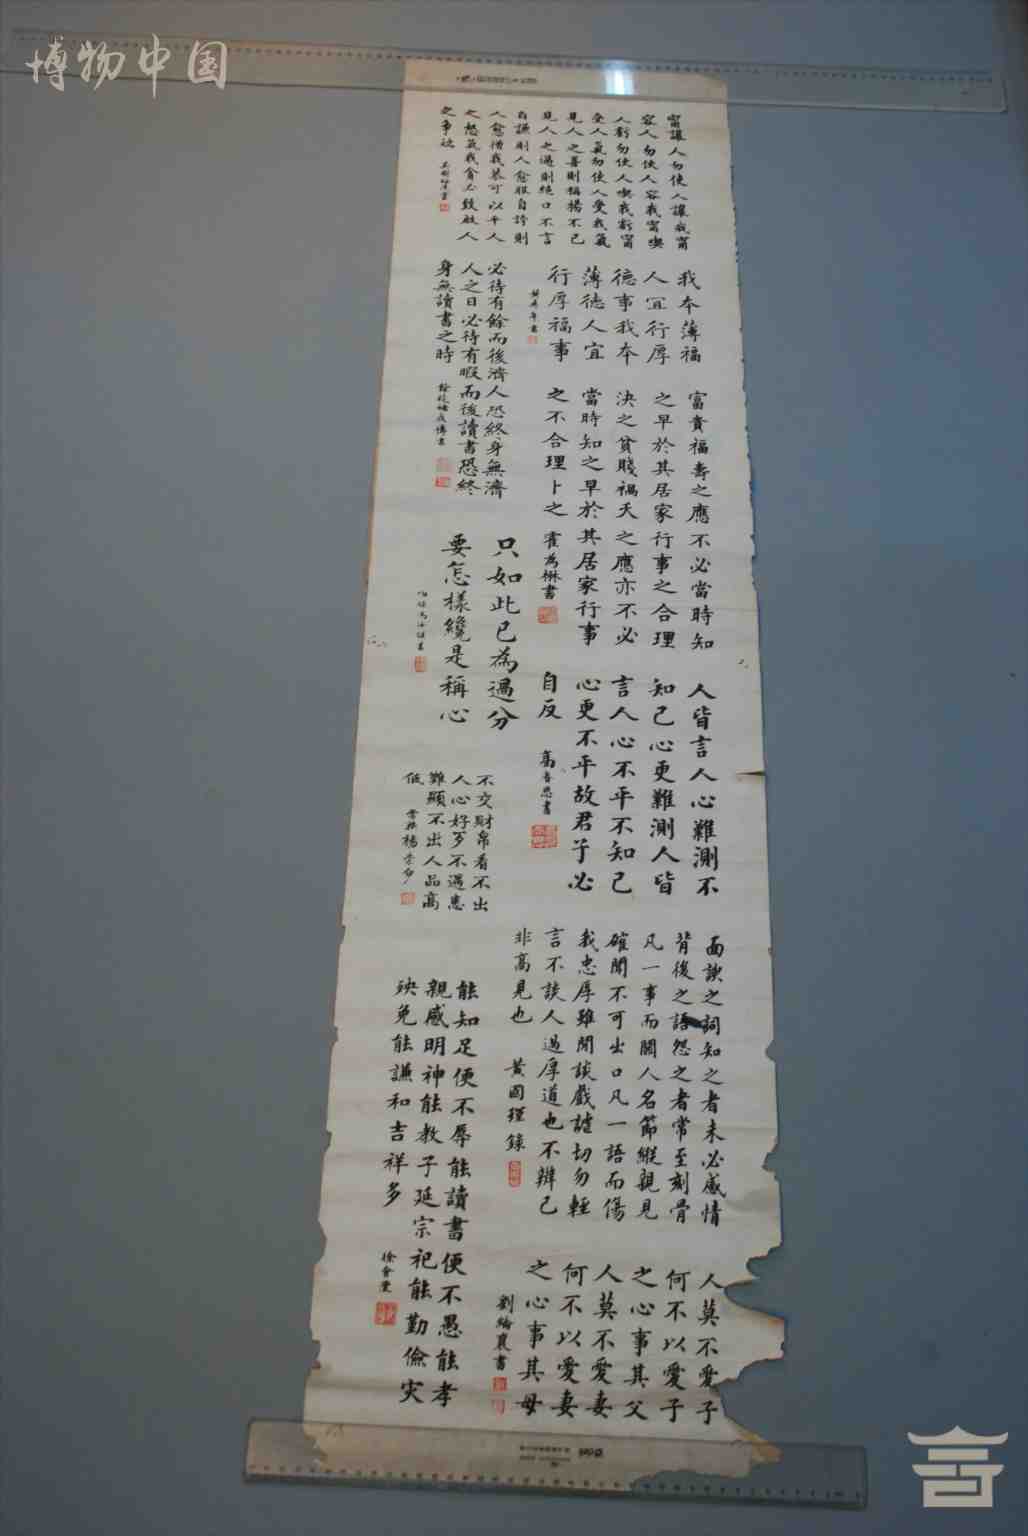 博物中国
甯讓人勿使人讓我甯
容人勿使人容我甯喫
人虧勿使人喫我虧甯
受人氣勿使人受我氣
見人之善則稱揚不已
見人之過則絕口不言
自謙則人愈服自誇則
人愈憎我恭可以平人
之怒氣我貪必致啟人
之爭訟
我本薄福
人宜行厚
德事我本
薄德人宜
行厚福事
必待有餘而後濟人恐終身無濟
人之日必待有暇而後讀書恐終
身無讀書之時
富貴福壽之應不必當時知
之早於其居家行事之合理
決之貧賤禍夭之應亦不必
當時知之早於其居家行事
之不合理卜之
霍為楙書
只如此已為過分
要怎樣纔是稱心
人皆言人心難測不
知己心更難測人皆
言人心不平不知己
心更不平故君子必
自反
不交財帛看不出
人心好歹不遇患
難顯不出人品高
低
面諛之詞知之者未必感情
背後之語怨之者常至刻骨
凡一事而關人名節縱親見
確聞不可出口凡一語而傷
我忠厚雖閒談戲謔切勿輕
言不談人過厚道也不辨己
非高見也
黃國瑾錄
能知足便不辱能讀書便不愚能孝
親感明神能教子延宗祀能勤儉災
殃免能謙和吉祥多
徐會灃
人莫不愛子
何不以愛子
之心事其父
人莫不愛妻
何不以愛妻
之心事其母
劉綸襄書